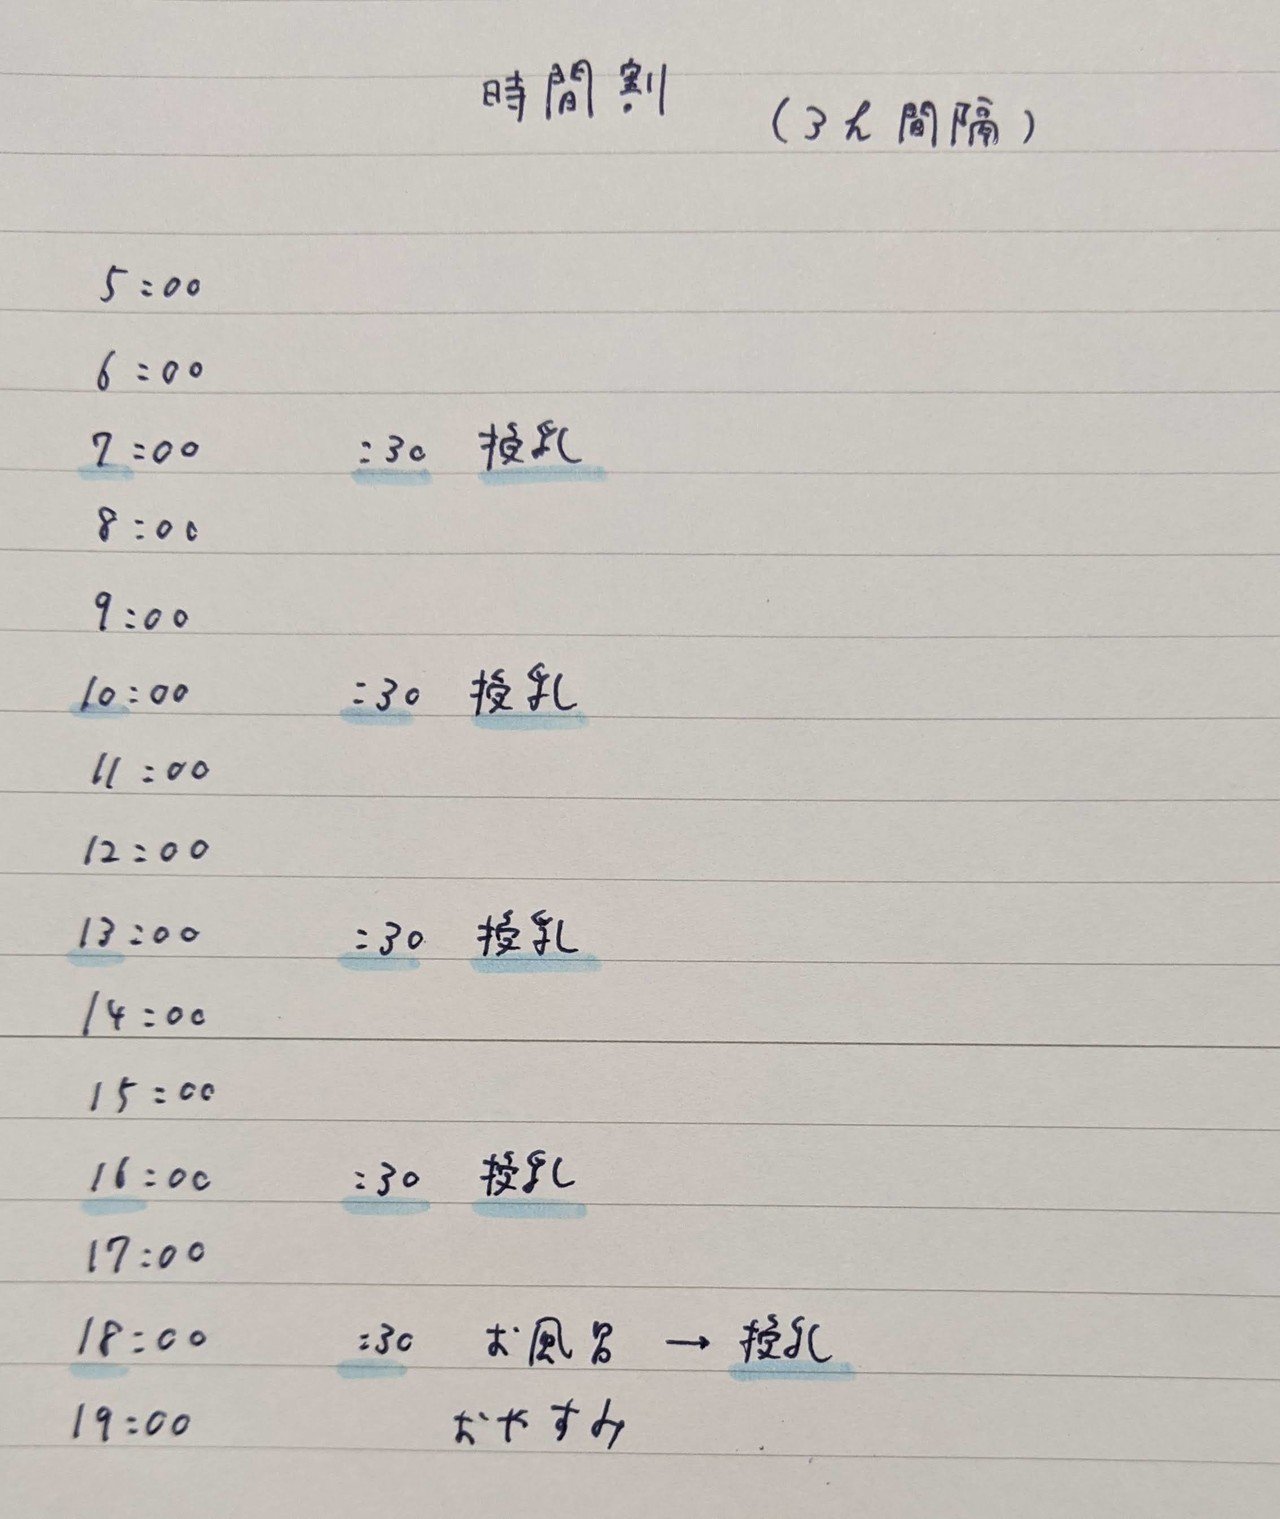 時間割
(3h間隔)
5:00
6:00
7:00 :30 授乳
8:00
9:00
10:00 :30 授乳
11:00
12:00
13:00 :30 授乳
14:00
15:00
16:00 :30 授乳
17:00
18:00 :30 お風呂 → 授乳
19:00 おやすみ